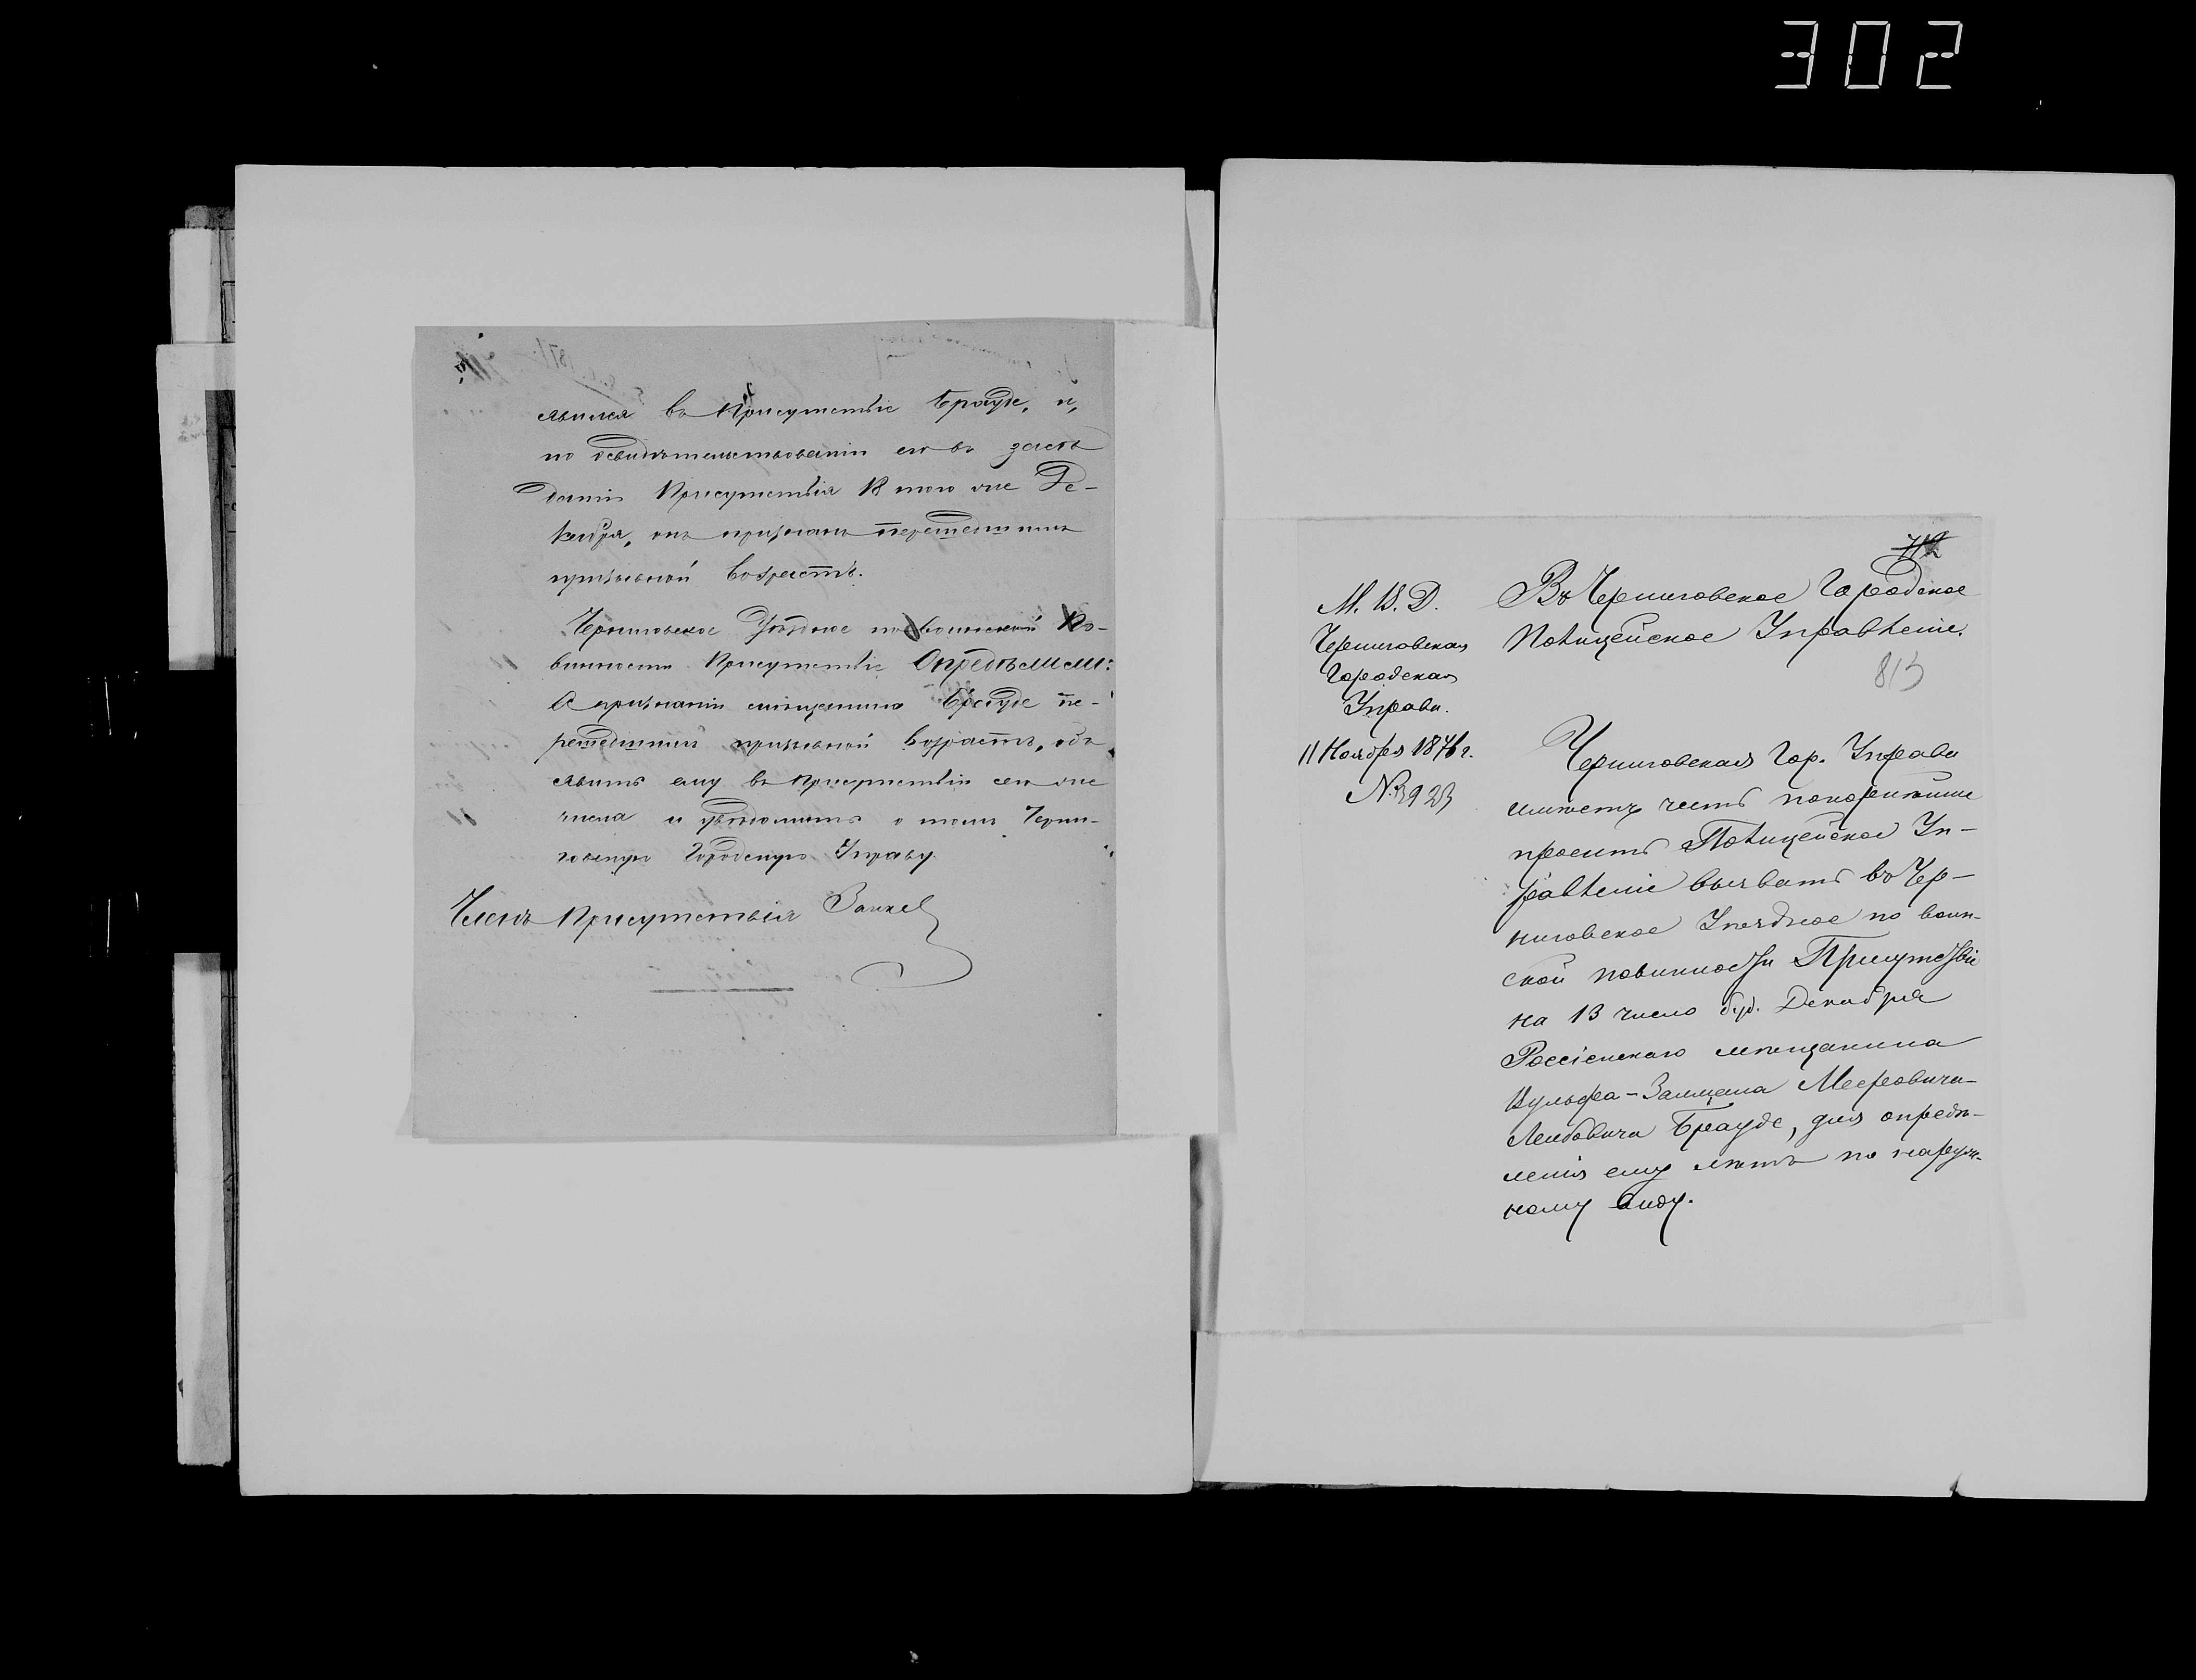 302
явился въ Присутствіе Брауде, и,
по освидѣтельствованіи его въ засѣ
даніи Присутствія 13 того же Де-
кабря, онъ признанъ перешедшимъ
призывной возрастъ.
Черниговское Уѣздное по воинской По-
винности Присутствіе Опредѣлили:
О признаніи мѣщанина Брауде пе-
решедшимъ призывной возрастъ, объ
явить ему въ Присутствіи сего же
числа и увѣдомить о томъ Черни-
говскую Городскую Управу.
Членъ Присутствія
М. В. Д.
Черниговская
Городская
Управа.
11 Ноября 1876 г.
№ 3923
Въ Черниговское Городское
Полицейское Управленіе.
813
Черниговская Гор. Управа
имѣетъ честь покорнѣйше
просить Полицейское Уп-
равленіе вызвать въ Чер-
ниговское Уѣздное по воин-
ской повинности Присутствіе
на 13 число буд. Декабря
Россіенскаго мѣщанина
Вульфа-Залмана Мееровича-
Лейбовича Брауде, для опредѣ-
ленія ему лѣтъ по наруж-
ному виду.